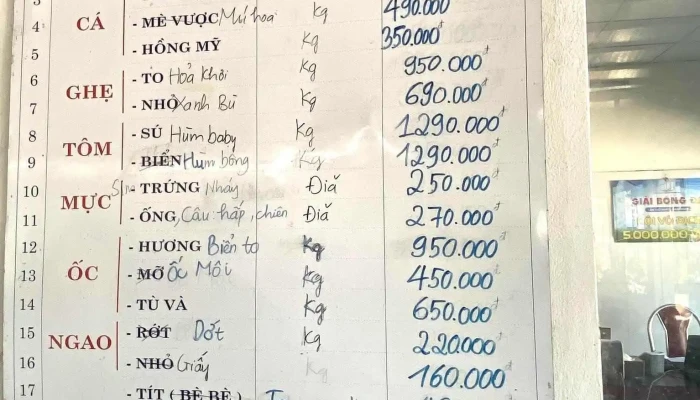 4 CÁ - MÈ VƯỢC Mú hoa Kg 490.000
5 - HỒNG MỸ Kg 350.000đ
6 GHẸ - TO Hoả Khôi Kg 950.000đ
7 - NHỎ Xanh Bù Kg 690.000đ
8 TÔM - SÚ Hùm baby Kg 1290.000đ
9 - BIỂN Hùm bông Kg 1290.000đ
10 MỰC - TRỨNG Nháy Điã 250.000đ
11 - ỐNG, Câu hấp, chiên Điã 270.000đ
12 ỐC - HƯƠNG Biển to Kg 950.000đ
13 - MỠ Ốc Môi Kg 450.000đ
14 - TÙ VÀ Kg 650.000đ
15 NGAO - RỚT Dớt Kg 220.000đ
16 - NHỎ Giấy Kg 160.000đ
17 - TÍT ( BÈ BÈ )
GIẢI BÓNG
5.000.000đ